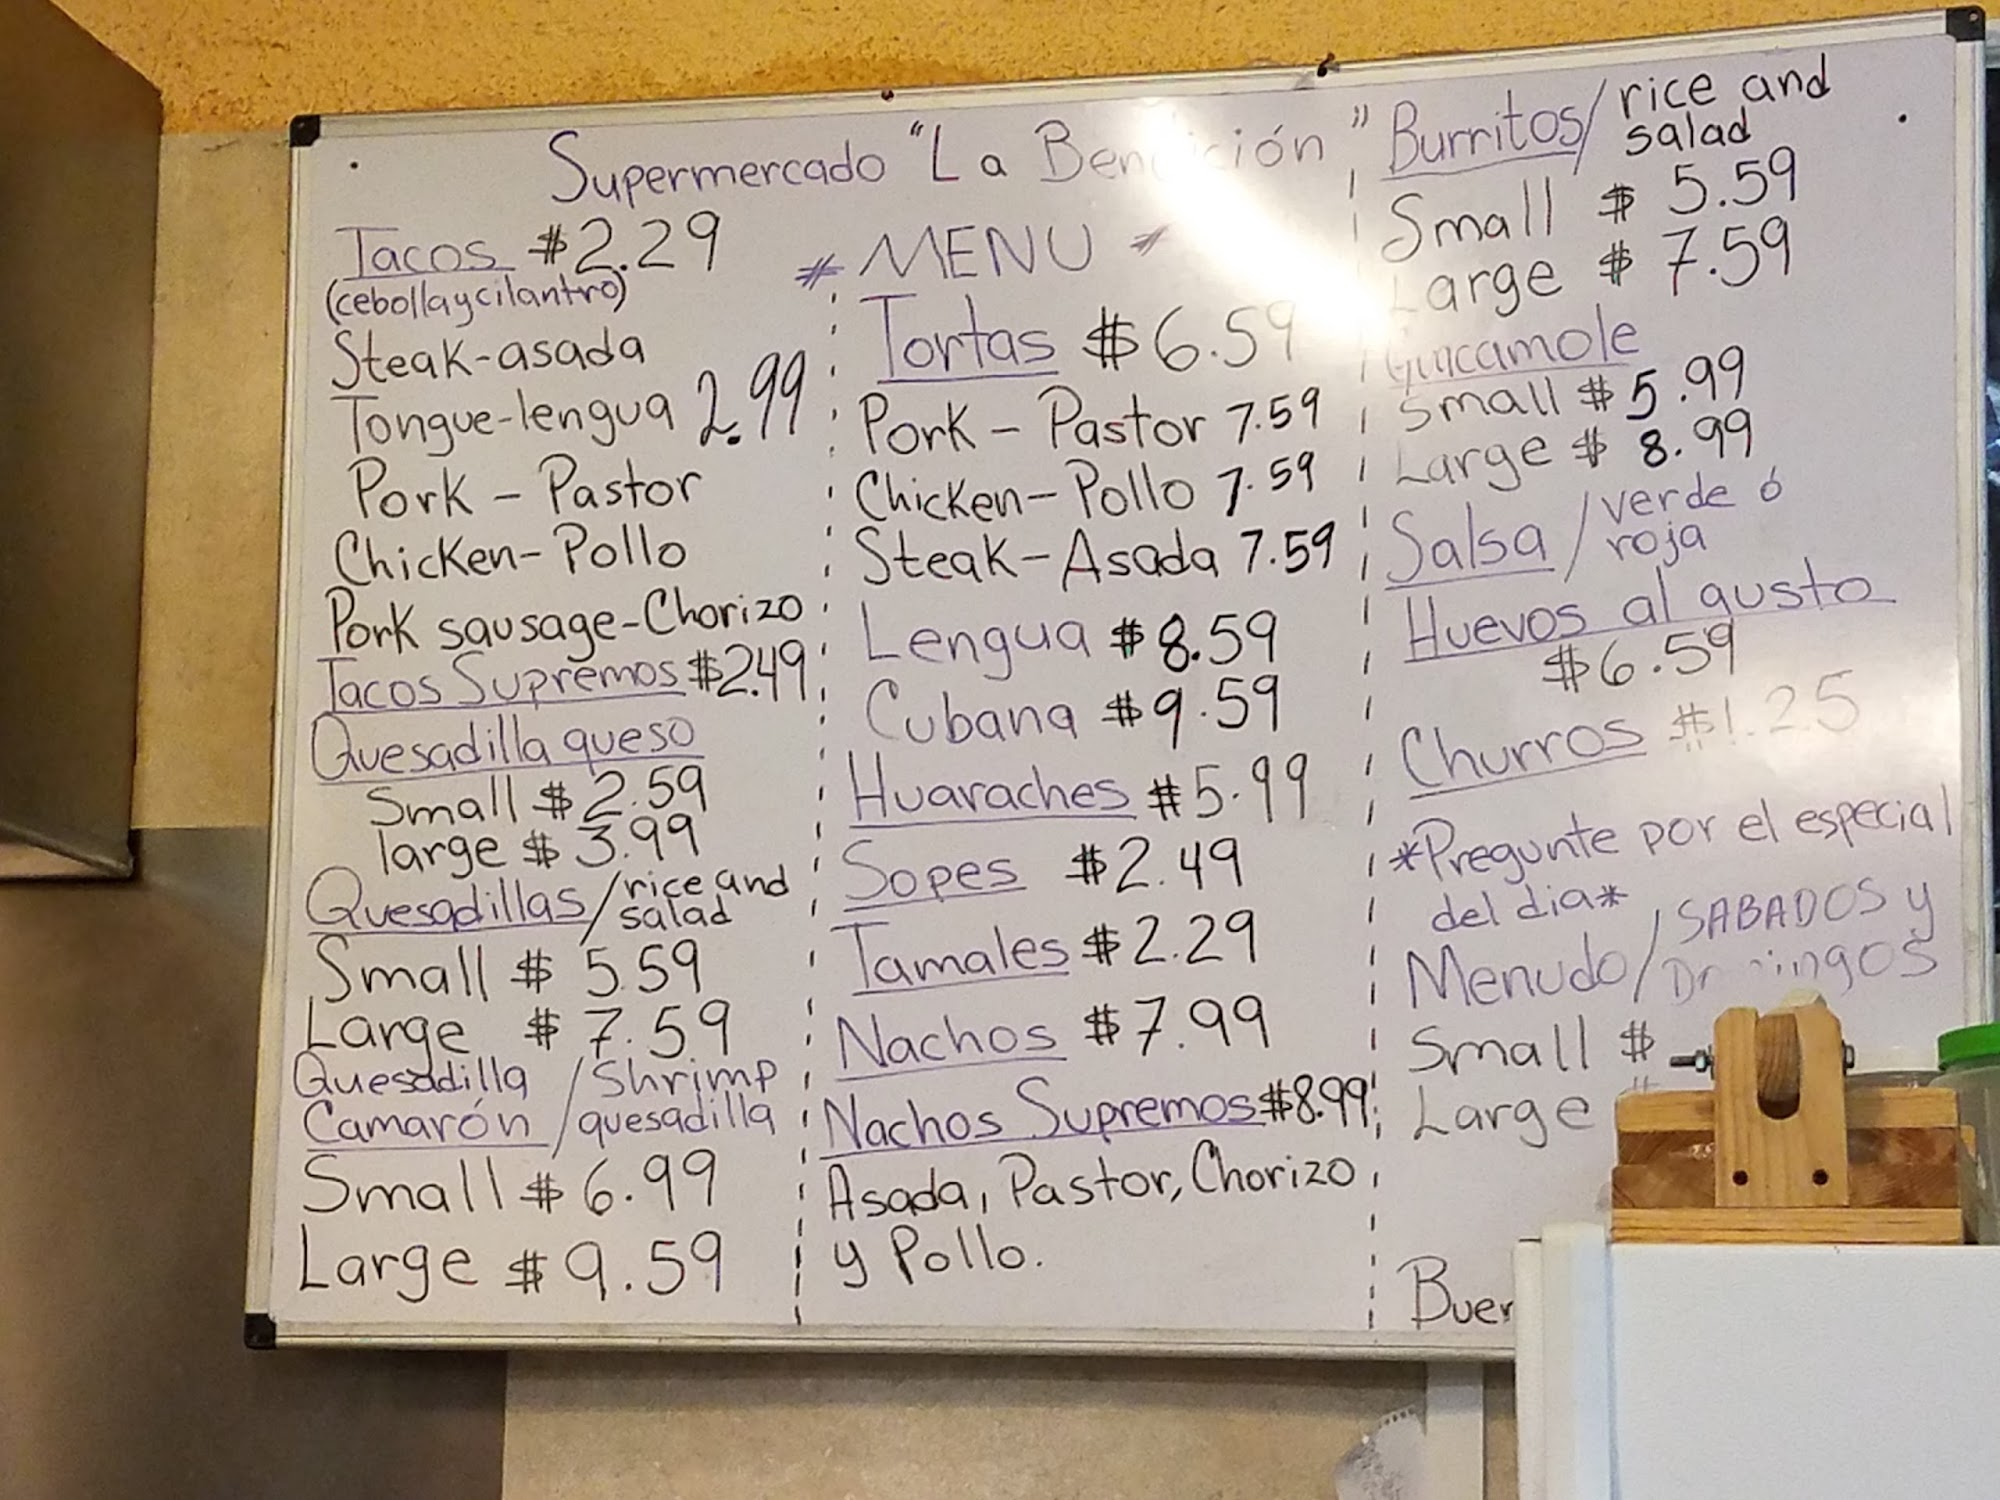 Supermercado "La Bendición"
* MENU *
Tacos $2.29
(cebolla y cilantro)
Steak-asada
Tongue-lengua 2.99
Pork - Pastor
Chicken-Pollo
Pork sausage-Chorizo
Tacos Supremos $2.49
Quesadilla queso
Small $2.59
large $3.99
Quesadillas/rice and
salad
Small $5.59
Large $7.59
Quesadilla /Shrimp
Camarón /quesadilla
Small $6.99
Large $9.59
Tortas $6.59
Pork - Pastor 7.59
Chicken-Pollo 7.59
Steak-Asada 7.59
Lengua $8.59
Cubana $9.59
Huaraches $5.99
Sopes $2.49
Tamales $2.29
Nachos $7.99
Nachos Supremos $8.99
Asada, Pastor, Chorizo
y Pollo.
Burritos/rice and
salad
Small $5.59
Large $7.59
Small $5.99
Large $8.99
Salsa /verde ó
roja
Huevos al gusto
$6.59
Churros $1.25
*Pregunte por el especial
del dia*
Menudo/SABADOS y
Domingos
Small $
Large